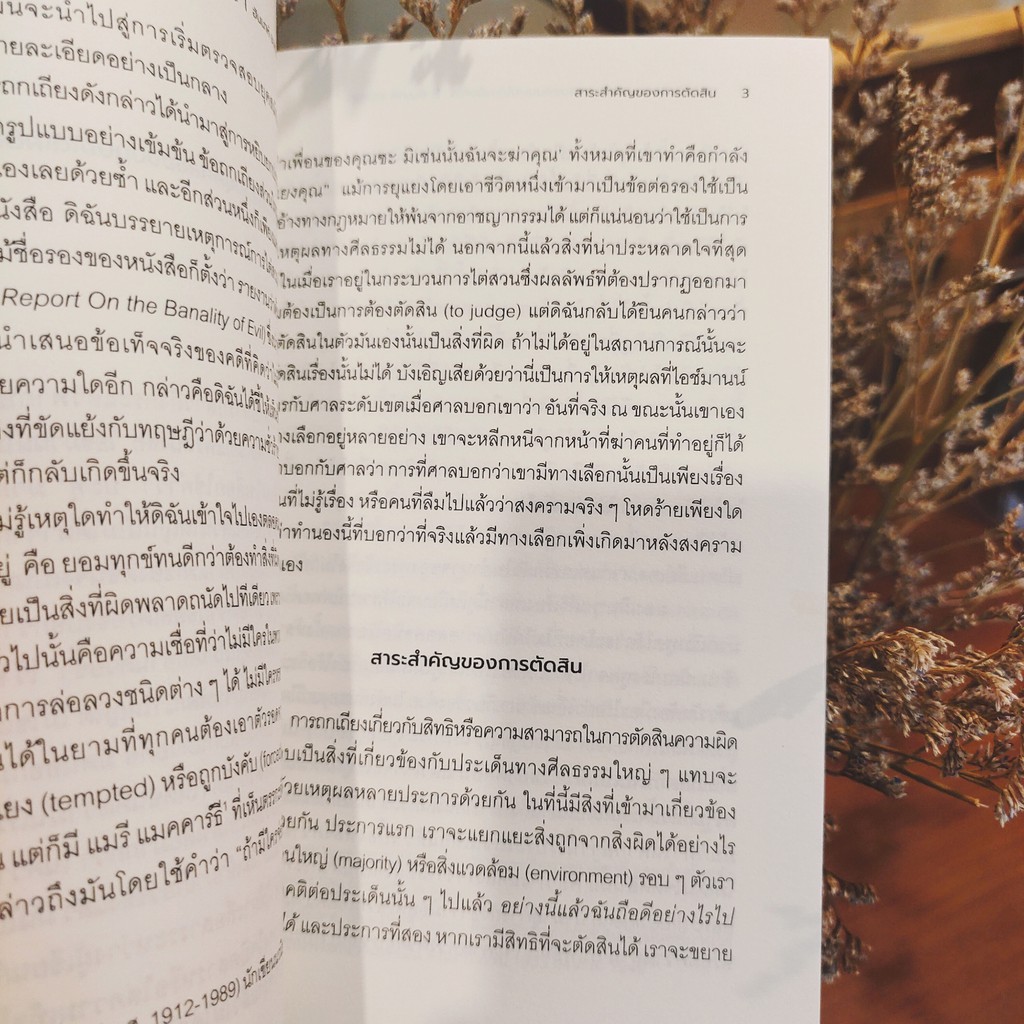 นจะนำไปสู่การเริ่มตรวจสอบ
ายละเอียดอย่างเป็นกลาง
ถกเถียงดังกล่าวได้นำมาสู่การ
รูปแบบอย่างเข้มข้น ข้อถกเถียง
องเลยด้วยซ้ำ และอีกส่วนหนึ่งก็
นังสือ ดิฉันบรรยายเหตุการณ์
ม้ชื่อรองของหนังสือก็ตั้งว่า รายงาน
Report On the Banality of Evil)
นำเสนอข้อเท็จจริงของคดีที่คิดว่า
ยความใดอีก กล่าวคือดิฉันได้
งที่ขัดแย้งกับทฤษฎีว่าด้วยความ
ต่ก็กลับเกิดขึ้นจริง
ม่รู้เหตุใดทำให้ดิฉันเข้าใจไปเอง
ยู่ คือ ยอมทุกข์ทนดีกว่าต้องทำสิ่ง
ยเป็นสิ่งที่ผิดพลาดถนัดไปที่เดียว
วไปนั้นคือความเชื่อที่ว่าไม่มีใคร
การล่อลวงชนิดต่าง ๆ ได้ ไม่มีใคร
นได้ในยามที่ทุกคนต้องเอาตัว
ยง (tempted) หรือถูกบังคับ
น แต่ก็มี แมรี แมคคาร์ธี ที่เห็น
ล่าวถึงมันโดยใช้คำว่า “ถ้ามีใคร
1912-1989) นักเขียน
สาระสำคัญของการตัดสิน 3
าเพื่อนของคุณซะ มิเช่นนั้นฉันจะฆ่าคุณ’ ทั้งหมดที่เขาทำคือกำลัง
ยงคุณ” แม้การยุแยงโดยเอาชีวิตหนึ่งเข้ามาเป็นข้อต่อรองใช้เป็น
อ้างทางกฎหมายให้พ้นจากอาชญากรรมได้ แต่ก็แน่นอนว่าใช้เป็นการ
เหตุผลทางศีลธรรมไม่ได้ นอกจากนี้แล้วสิ่งที่น่าประหลาดใจที่สุด
ในเมื่อเราอยู่ในกระบวนการไต่สวนซึ่งผลลัพธ์ที่ต้องปรากฏออกมา
ต้องเป็นการต้องตัดสิน (to judge) แต่ดิฉันกลับได้ยินคนกล่าวว่า
ตัดสินในตัวมันเองนั้นเป็นสิ่งที่ผิด ถ้าไม่ได้อยู่ในสถานการณ์นั้นจะ
ดสินเรื่องนั้นไม่ได้ บังเอิญเสียด้วยว่านี่เป็นการให้เหตุผลที่ไอช์มานน์
รกับศาลระดับเขตเมื่อศาลบอกเขาว่า อันที่จริง ณ ขณะนั้นเขาเอง
างเลือกอยู่หลายอย่าง เขาจะหลีกหนีจากหน้าที่ฆ่าคนที่ทำอยู่ก็ได้
บอกกับศาลว่า การที่ศาลบอกว่าเขามีทางเลือกนั้นเป็นเพียงเรื่อง
นที่ไม่รู้เรื่อง หรือคนที่ลืมไปแล้วว่าสงครามจริง ๆ โหดร้ายเพียงใด
ว่าทำนองนี้ที่บอกว่าที่จริงแล้วมีทางเลือกเพิ่งเกิดมาหลังสงคราม
เอง
สาระสำคัญของการตัดสิน
การถกเถียงเกี่ยวกับสิทธิหรือความสามารถในการตัดสินความผิด
บเป็นสิ่งที่เกี่ยวข้องกับประเด็นทางศีลธรรมใหญ่ ๆ แทบจะ
วยเหตุผลหลายประการด้วยกัน ในที่นี้มีสิ่งที่เข้ามาเกี่ยวข้อง
วยกัน ประการแรก เราจะแยกแยะสิ่งถูกจากสิ่งผิดได้อย่างไร
นใหญ่ (majority) หรือสิ่งแวดล้อม (environment) รอบ ๆ ตัวเรา
คติต่อประเด็นนั้น ๆ ไปแล้ว อย่างนี้แล้วฉันถือดีอย่างไรไป
ได้ และประการที่สอง หากเรามีสิทธิที่จะตัดสินได้ เราจะขยาย